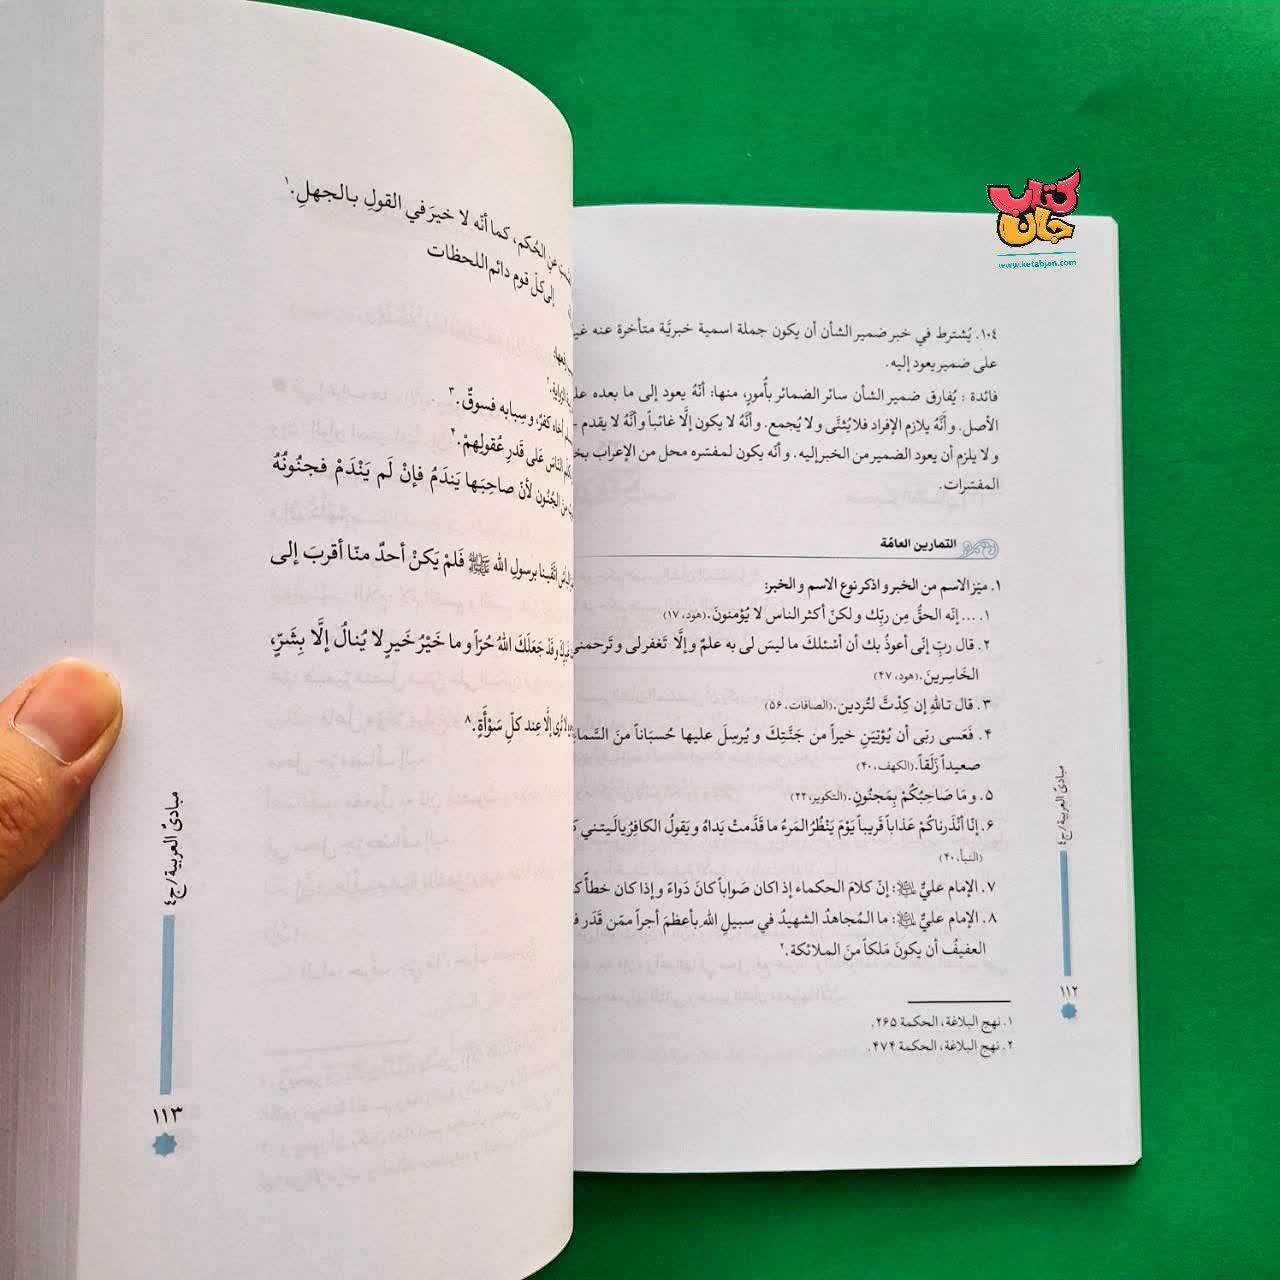 کتاب جان
www.ketabjan.com
۱۰۴. يُشترط في خبر ضمير الشأن أن يكون جملة اسمية خبريَّة متأخرة عنه
على ضمير يعود إليه.
فائدة : يُفارق ضمير الشأن سائر الضمائر بأُمورٍ، منها: أنّهُ يعود إلى ما بعده
الأصل. وأَنَّهُ يلازم الإفراد فلا يُثنَّى ولا يُجمع. وأنَّهُ لا يكون إلَّا غائباً وأنَّهُ لا يقدم
ولا يلزم أن يعود الضمير من الخبر إليه. وأنه يكون لمفسّره محل من الإعراب
المفسّرات.
التمارين العامّة
۱. ميّز الاسم من الخبر و اذكر نوع الاسم و الخبر:
۱. ... إنّه الحقُّ مِن ربّك و لكنّ أكثر الناس لا يُؤمنونَ. (هود، ۱۷)
۲. قال ربّ إنّى أعوذُ بك أن أسْئلكَ ما ليسَ لى به علمٌ و إلَّا تَغفر لى و تَرحمنى
الخَاسِرينَ. (هود، ۴۷)
۳. قال تاللهِ إن كِدْتَّ لتُردين. (الصافات، ۵۶)
۴. فَعَسى ربّى أن يُؤْتِيَنِ خيراً من جَنَّتِكَ و يُرسِلَ عليها حُسبَاناً منَ السَّماءِ
صعيداً زَلَقاً. (الكهف، ۴۰)
۵. و مَا صَاحِبُكُمْ بِمَجنُونٍ. (التكوير، ۲۲)
۶. إنّا أنْذَرناكُمْ عَذاباً قَريباً يَوْمَ يَنْظُرُ المَرءُ ما قَدَّمتْ يَداهُ و يَقولُ الكافرُ يالَيتني
(النبأ، ۴۰)
۷. الإمام عليٌّ ﷺ: إنّ كلامَ الحكماء إذ اكان صَواباً كانَ دَواءً و إذا كان خطأً
۸. الإمام عليٌّ ﷺ: ما المُجاهدُ الشهيدُ في سبيلِ اللهِ بأعظمَ أجراً ممّن قَدَر
العفيفُ أن يكونَ مَلكاً منَ الملائكة.۲
۱. نهج البلاغة، الحكمة ۲۶۵.
۲. نهج البلاغة، الحكمة ۴۷۴.
مبادئ العربية / ج٤
۱۱۲
عنِ الحُكم، كما أنّه لا خيرَ في القولِ بالجهلِ.۱
إلى كلّ قوم دائم اللحظات
أخاه كفرٌ، و سِبابه فسوقٌ.۳
الناسَ عَلى قَدرِ عُقولِهمْ.۴
منَ الجُنُون لأنّ صاحِبَها يَندَمُ فإنْ لَم يَنْدَمْ فجنُونُهُ
اتَّقَينا برسولِ الله ﷺ فَلمْ يَكنْ أحدٌ منّا أقربَ إلى
و قَدْ جَعَلَكَ اللهُ حُرّاً و ما خَيْرُ خَيرٍ لا يُنالُ إلَّا بِشَرّ،
إلَّا عِند كلّ سَوْأَةٍ.۸
مبادئ العربية / ج٤
۱۱۳